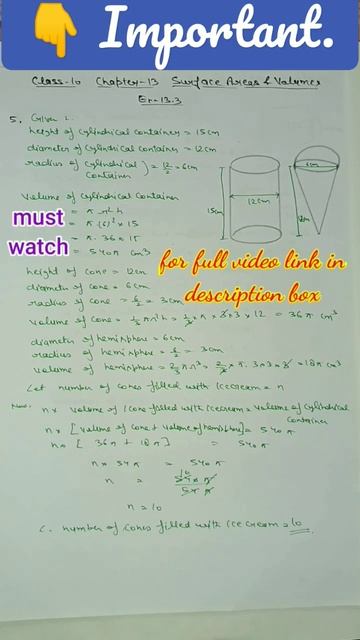 👇 Important.
Class-10 Chapter-13 Surface Areas & Volumes
Ex-13.3
5. Given :
height of cylindrical container = 15cm
diameter of cylindrical container = 12cm
radius of cylindrical container } = 12/2 = 6cm
Volume of cylindrical Container
= π r²h
= π (6)² × 15
= π. 36 × 15
= 540π cm³
15cm
12cm
6cm
12cm
must
watch
for full video link in
description box
height of cone = 12cm
diameter of cone = 6cm
radius of cone = 6/2 = 3cm
volume of cone = 1/3 πr²h = 1/3 × π × 3×3 × 12 = 36π cm³
diameter of hemisphere = 6cm
radius of hemisphere = 6/2 = 3cm
volume of hemisphere = 2/3 πr³ = 2/3 × π. 3×3×3 = 18π cm³
Let number of cones filled with icecream = n
Now, n × volume of 1 cone filled with icecream = volume of cylindrical
Container
n × [volume of cone + volume of hemisphere] = 540π
n × [36π + 18π] = 540π
n × 54π = 540π
n = 540π/54π 10
n = 10
∴ number of cones filled with ice cream = 10